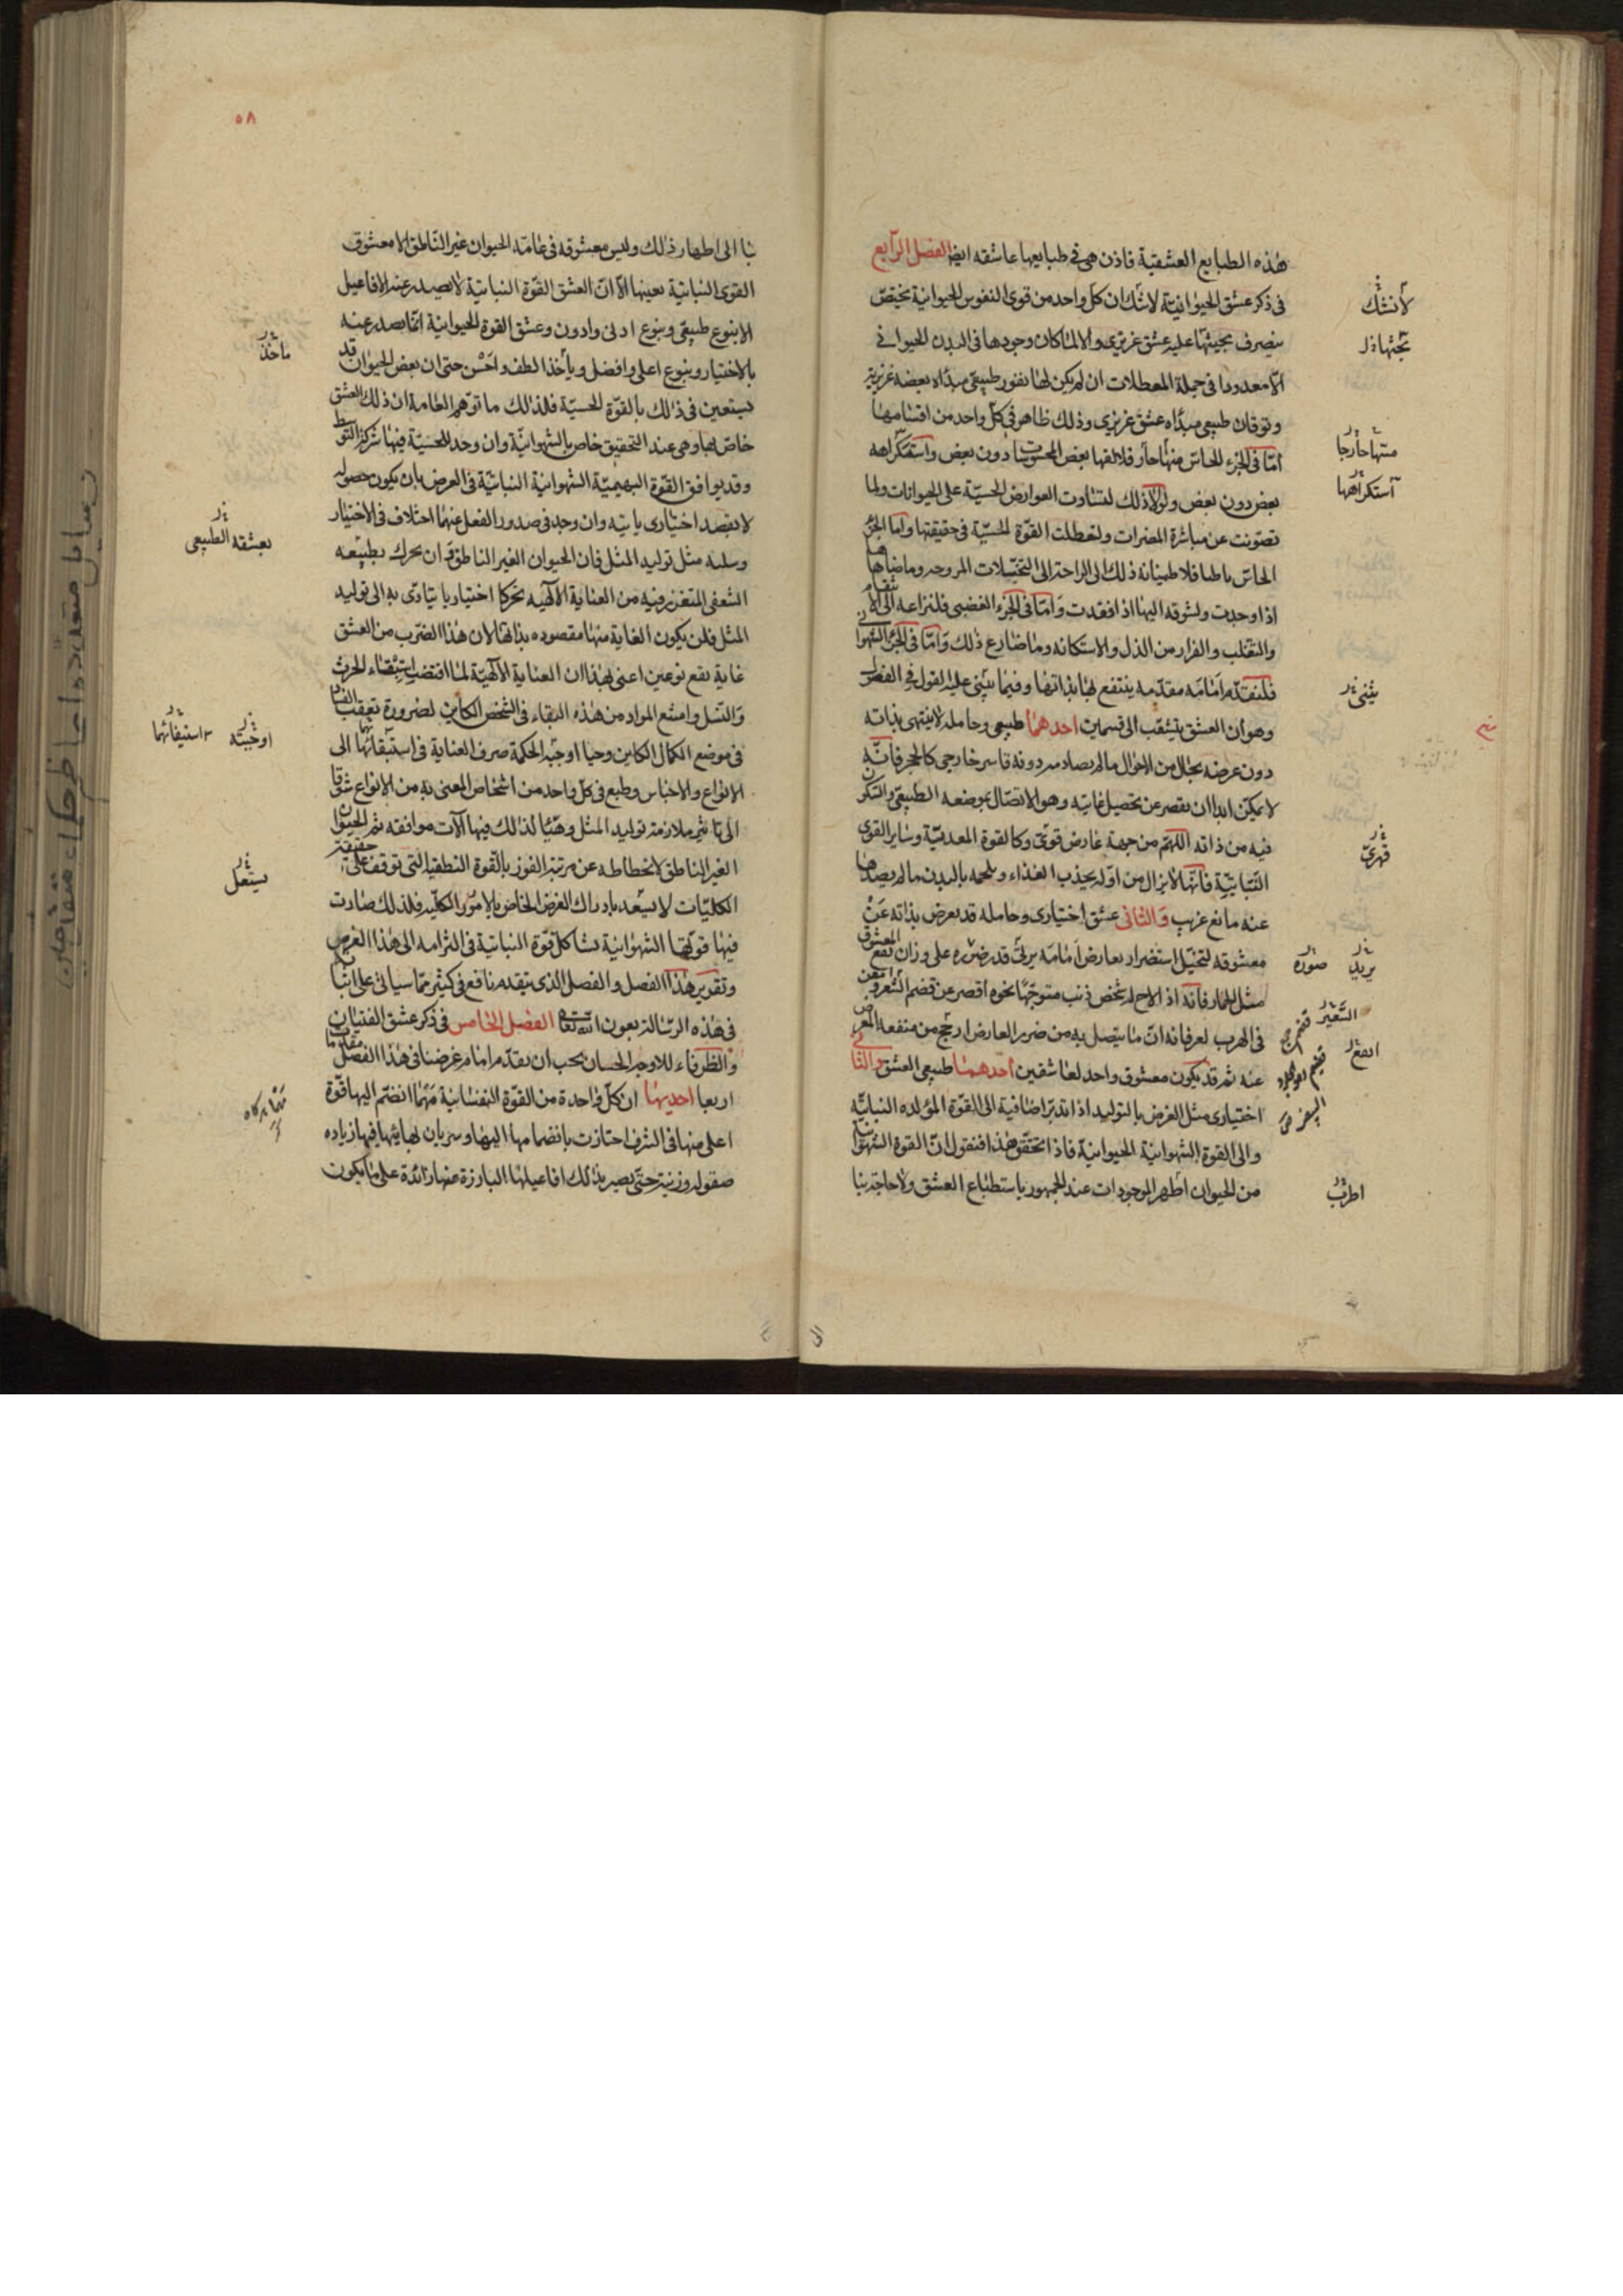 هذه الطبايع العشقية فاذن هى فى طبايعها عاشقه ايضا الفصل الرابع
فى ذكر عشق الحيوانية لاشك ان كل واحد من قوى النفوس الحيوانية يختص
بتصرف يحثها عليه عشق غريزى والا لما كان وجودها فى البدن الحيوانى
الا معدودا فى جملة المعطلات ان لم يكن لها نفور طبيعى مبداه بغضه غريزية
وتوقان طبيعى مبداه عشق غريزى وذلك ظاهر فى كل واحد من اقسامها
اما فى الجزء الحاس منها فلالفها بعض المحسوسات دون بعض واستكراهه
بعض دون بعض ولولا ذلك لتساوت العوارض الحسية على الحيوانات ولما
تصونت عن مباشرة المضرات ولتعطلت القوة الحسية فى حقيقتها واما الجزء
الحاس باطنا فلاطمينانه ذلك الى الراحة الى التخيلات المروحه وما ضاهاها
اذا وجدت ولشوقه اليها اذا فقدت واما فى الجزء الغضبى فلنزاعه الى الانتقام
والتغلب والفرار من الذل والاستكانه وما ضارع ذلك واما فى الجزء الشهوانى
فلنقدم امامه مقدمه ينتفع بها بذاتها وفيما يبتنى عليه القول فى الفصل
وهو ان العشق يتشعب الى قسمين احدهما طبيعى وحامله لا ينتهى بذاته
دون عرضه بحال من الاحوال ما لم يصادمه دونه قاسر خارجى كالحجر فانه
لا يمكن ابدا ان يقصر عن تحصيل غايته وهو الاتصال بموضعه الطبيعى والسكون
فيه من ذاته اللهم من جهة عارض قوى وكالقوة المعدية وساير القوى
النباتية فانها لا يزال من اوله يجذب الغذاء ويلحمه بالبدن ما لم يصدها
عنه مانع غريب والثانى عشق اختيارى وحامله قد يعرض بذاته عن
معشوقه لتخيل استضرار بعارض امامه يرى قدر ضره على وزان نفع المعشوق
مثل الحمار فانه اذا لاح له شخص ذئب متوجها نحوه اقصر عن قضم الشعير وامعن
فى الهرب لعرفانه ان ما يتصل به من ضرر العارض ارجح من منفعه المعرض
عنه ثم قد يكون معشوق واحد لعاشقين احدهما طبيعى العشق والثانى
اختيارى مثل الغرض بالتوليد اذا تدبر اضافية الى القوة المولده النباتيه
والى القوة الشهوانية الحيوانية فاذا تحقق هذا فنقول ان القوة الشهوانية
من الحيوان اظهر الموجودات عند الجمهور باستطباع العشق ولا حاجة بنا
لانشك
تحثها
منها خارجا
استكراهها
يبنى
قهرى
يريد صوره
الشعير
انفع
اطرب
٥٨
بنا الى اظهار ذلك وليس معشوقه فى عامة الحيوان غير الناطق الا معشوق
القوى النباتية بعينها الا ان العشق القوة النباتية لا يصدر عنه الافاعيل
الا بنوع طبيعى وبنوع ادنى وادون وعشق القوة الحيوانية انما يصدر عنه
بالاختيار وبنوع اعلى وافضل وياخذ الطف واحسن حتى ان بعض الحيوان قد
يستعين فى ذلك بالقوة الحسية فلذلك ما توهم العامة ان ذلك العشق
خاص لها وهى عند التحقيق خاص بالشهوانية وان وجد للحسية فيها شركة التوسط
وقد يوافق القوة البهيمية الشهوانية النباتية فى الغرض بان يكون حصوله
لا بقصد اختيارى ياتيه وان وجد فى صدور الفعل عنهما اختلاف فى الاختيار
وسلبه مثل توليد المثل فان الحيوان الغير الناطق وان يحرك بطبيعته
الشعفى المتغرز فيه من العناية الالهيه تحركا اختياريا يتادى به الى توليد
المثل فلن يكون الغاية منها مقصوده بذاتها لان هذا الضرب من العشق
غايه تقع نوعين اعنى بهذا ان العناية الالهية لما اقتضت استبقاء الحرث
والنسل وامتنع المراد من هذه البقاء فى الشخص الكاين لضرورة تعقب الفساد
فى موضع الكمال الكاين وحيا اوجبه الحكمة صرف العناية فى استبقائهما الى
الانواع والاجناس وطبع فى كل واحد من اشخاص المعنى به من الانواع شوقا
الى تاثير ملازمة توليد المثل وهيئا لذلك فيها آلات موافقه ثم الحيوان
الغير الناطق لانحطاطه عن مرتبة الفوز بالقوة النطقيه التى توقف على حقيقة
الكليات لا يسعد بادراك الغرض الخاص بالامور الكليه فلذلك صارت
فيها قوتها الشهوانية تشاكل قوة النباتية فى التزامه الى هذا الغرض
وتقرير هذا الفصل والفصل الذى يتقدم نافع فى كثير مما سياتى على اثباتها
فى هذه الرسالة بعون الله تعالى الفصل الخامس فى ذكر عشق الفتيان
والظرفاء للاوجه الحسان يجب ان يقدم امام غرضنا فى هذا الفصل مقدمات
اربعا احديها ان كل واحدة من القوة النفسانية مهما انضم اليها قوة
اعلى منها فى الشرف احتازت بانضمامها اليها وسريان بهايها فيها زياده
صقوله وزينة حتى يصير بذلك افاعيلها البارزة عنها زائدة على ما يكون
ماخذ
بعشقه الطبيعى
اوجبته
استيفائهما
يستعمل
رسايل متعدد